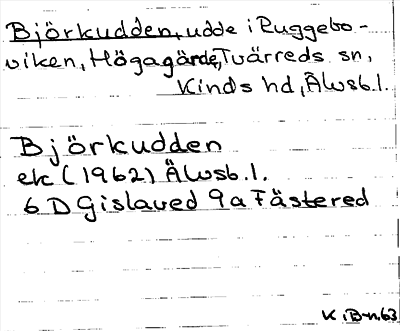 Björkudden, udde i Ruggebo-
viken, Högagärde, Tvärreds sn,
Kinds hd, Älvsb.l.
Björkudden
ek (1962) Älvsb.l.
6 D Gislaved 9a Fästered
K i B-n.63